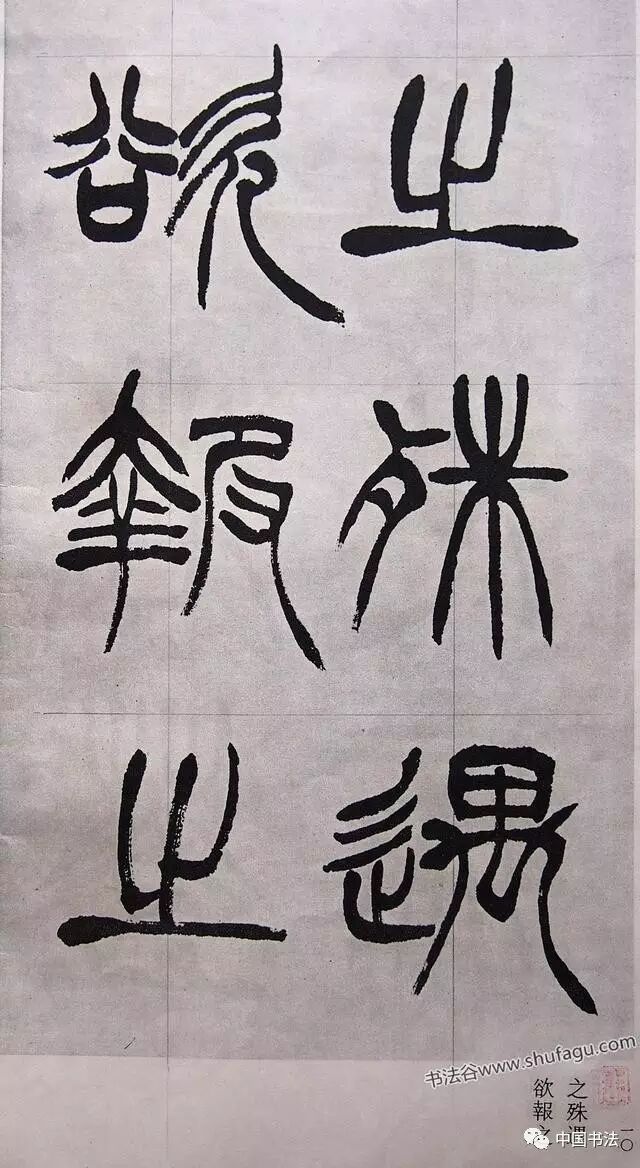 之殊遇
欲報之
书法谷www.shufagu.com
之殊遇
欲報之
一〇
中国书法